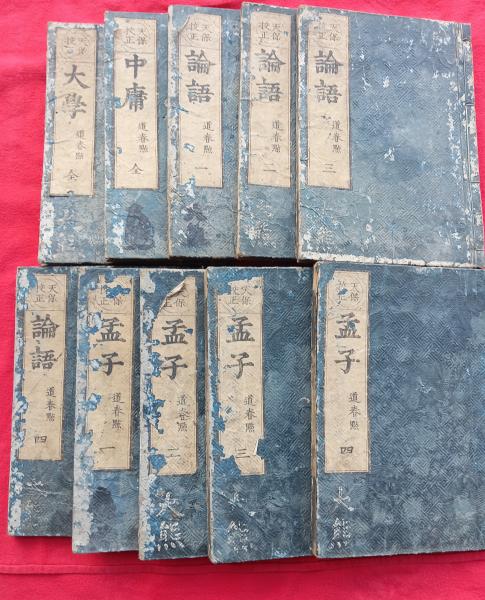 天保校正
大學
道春點
全
天保校正
中庸
道春點
全
天保校正
論語
道春點
一
天保校正
論語
道春點
二
天保校正
論語
道春點
三
天保校正
論語
道春點
四
天保校正
孟子
道春點
一
天保校正
孟子
道春點
二
天保校正
孟子
道春點
三
天保校正
孟子
道春點
四
熊
熊
熊